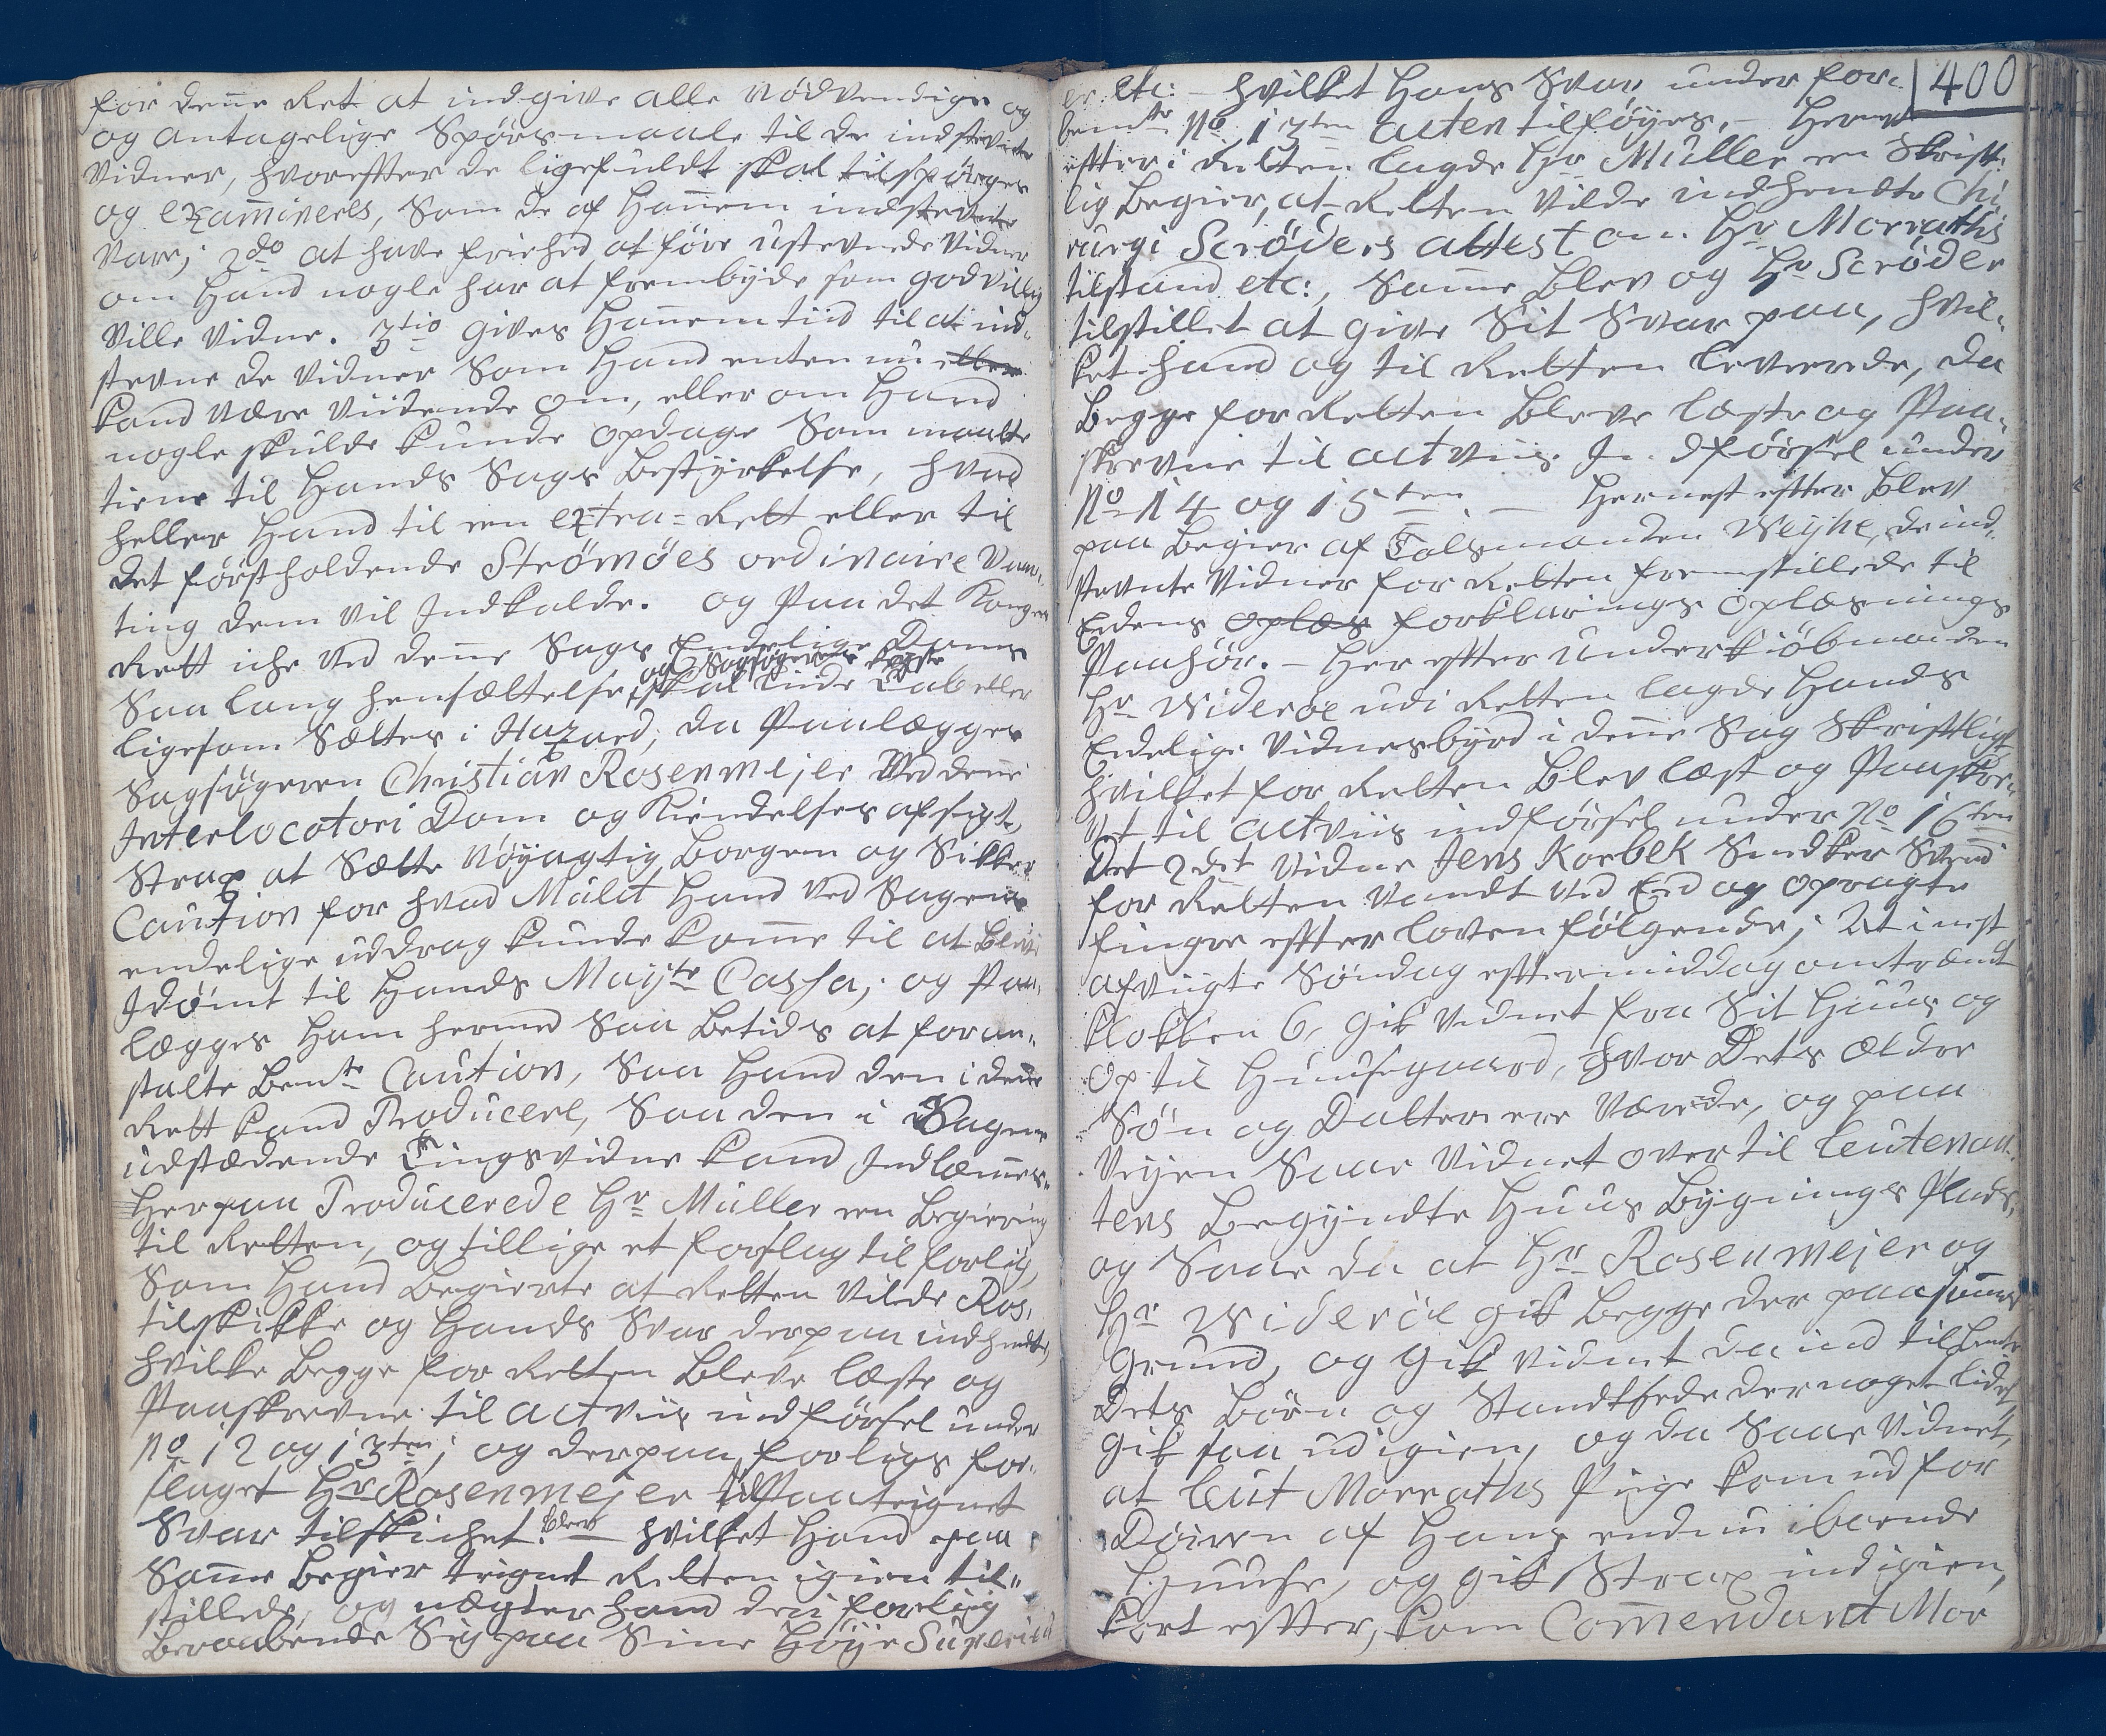 for denne Ret at indgive alle nödvendige og
og antagelige Spörsmaale til de indstevnte
Vidner, hvorefter de ligefuldt skal tilspörges
og examineres, som de af Hannem indstevnte
vare; 2do at have friehed at före ustevnede Vidner
om Hand nogle har at frembyde som godvillig
ville vidne. 3tio gives Hannem tiid til at ind-
stevne de Vidner som Hand enten nu eller
kand være vidende om, eller om Hand
nogle skulde kunde opdage som maatte
tiene til Hands Sags Bestyrkelse, hvad
heller Hand til en extra-Rett eller til
detförstholdende Strömöes ordinaire Vaar-
ting dem vil Indkalde. og paa det Kongens
Rett iche ved denne Sags Endelige Doms
saa lang hensættelse, og Sagsögerens Rejse skal lide Tab eller
ligesom sættes i Hazard; da paalægges
Sagsögeren Christian Rosenmejer ved denne
Interlocotori Dom og Kiendelses afsigt,
Strax at sætte nöyagtig Borgen og Sikker
Caution for hvad Mulct Hand ved Sagens
endelige uddrag kunde komme til at blive
Idömt til Hands Mayts Cassa; og paa-
lægges ham hermed saa betids at foran-
stalte bemte Caution, saa Hand den i denne
Rett kand Producere, saa den i Sagens
udstædende Tingsvidne kand Indlemmes.
Herpaa Producerede Hr Müller een Begiering
til Retten, og tillige et forslag til forlig,
som Hand begierte at Retten vilde Ros.
tilskikke og Hands Svar derpaa indhendte,
hvilke begge for Retten bleve læste og
Paaskrevne til actviis indförsel under
No 12 og 13ten; og derpaa forligs for-
slaget Hr Rosenmejer til Paateignet
Svar tilskichet blev. - hvilket Hand paa
samme Begier teignet Retten igien til-
stillede, og nægter hand den forlig
beraabende sig paa sine Höje Superieu
400
er etc: - hvilket Hans Svar under for-
bemte No 13ten acten tilföyes. - Hernest
efter i Retten lagde Hr Müller en Skrift-
lig Begier, at Retten vilde indhendte Chi-
rurgi Scröders attest om Hr Morraths
tilstand etc:, samme blev og Hr Scröder
tilstillet at give sit Svar paa, hvil-
ket hand og til Retten leverede, da
begge for Retten bleve læste og Paa-
skrevne til actviis Indförsel under
No 14 og 15ten. - Hernest efter blev
paa Begier af Talsmanden Weyhe, de ind-
stevnte Vidner for Retten fremstillede til
Eedens oplæs forklarings Oplæsnings
Paahör. - Her efter underkiöbmanden
Hr Wideröe udi Retten lagde Hands
Eedelige Vidnesbyrd i denne Sag Skriftligt,
hvilket for Retten blev læst og Paaskre-
vet til actviis indförsel under No 16ten
Det 2det Vidne Jens Korbek Snedker Svend
for Retten vandt ved Eed og opragte
finger efter loven fölgende; At i nest
afvigte Söndag eftermiddag omtrændt
klokken 6, gik Vidnet fra sit Huus og
op til Huusegaard, hvor Dets Ældre
Sön og Datter ere værende, og paa
Veyen saae Vidnet over til leutenan-
tens begyndte Huus Bygnings Plads,
og saae da at Hr Rosenmejer og
Hr Wideröe gik begge der paa samme
Grund, og gik vidnet da ind til bemte
Dets börn og Standtsede der noget lidet
gik saa ud igien, og da saae Vidnet,
at leut Morraths Pige kom ud for
Dören af Hans endnu iboende
Huuse, og gik Strax ind igien,
kort efter, kom Comendant Mor